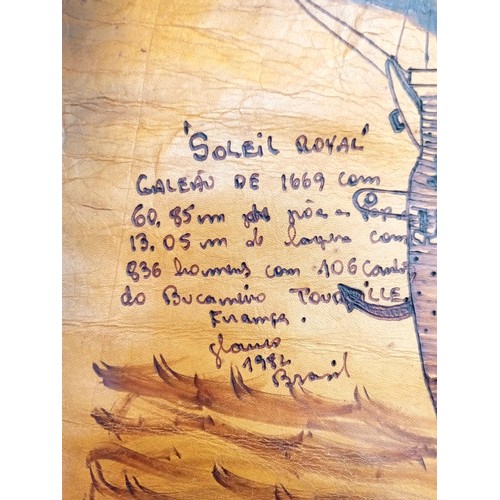 'SOLEIL ROYAL'
GALEÃO DE 1669 com
60,85m prôa a
13,05 m de largura com
836 homens com 106 Canhões
do Bucaneiro TOURVILLE.
França.
glauco
1982
Brasil